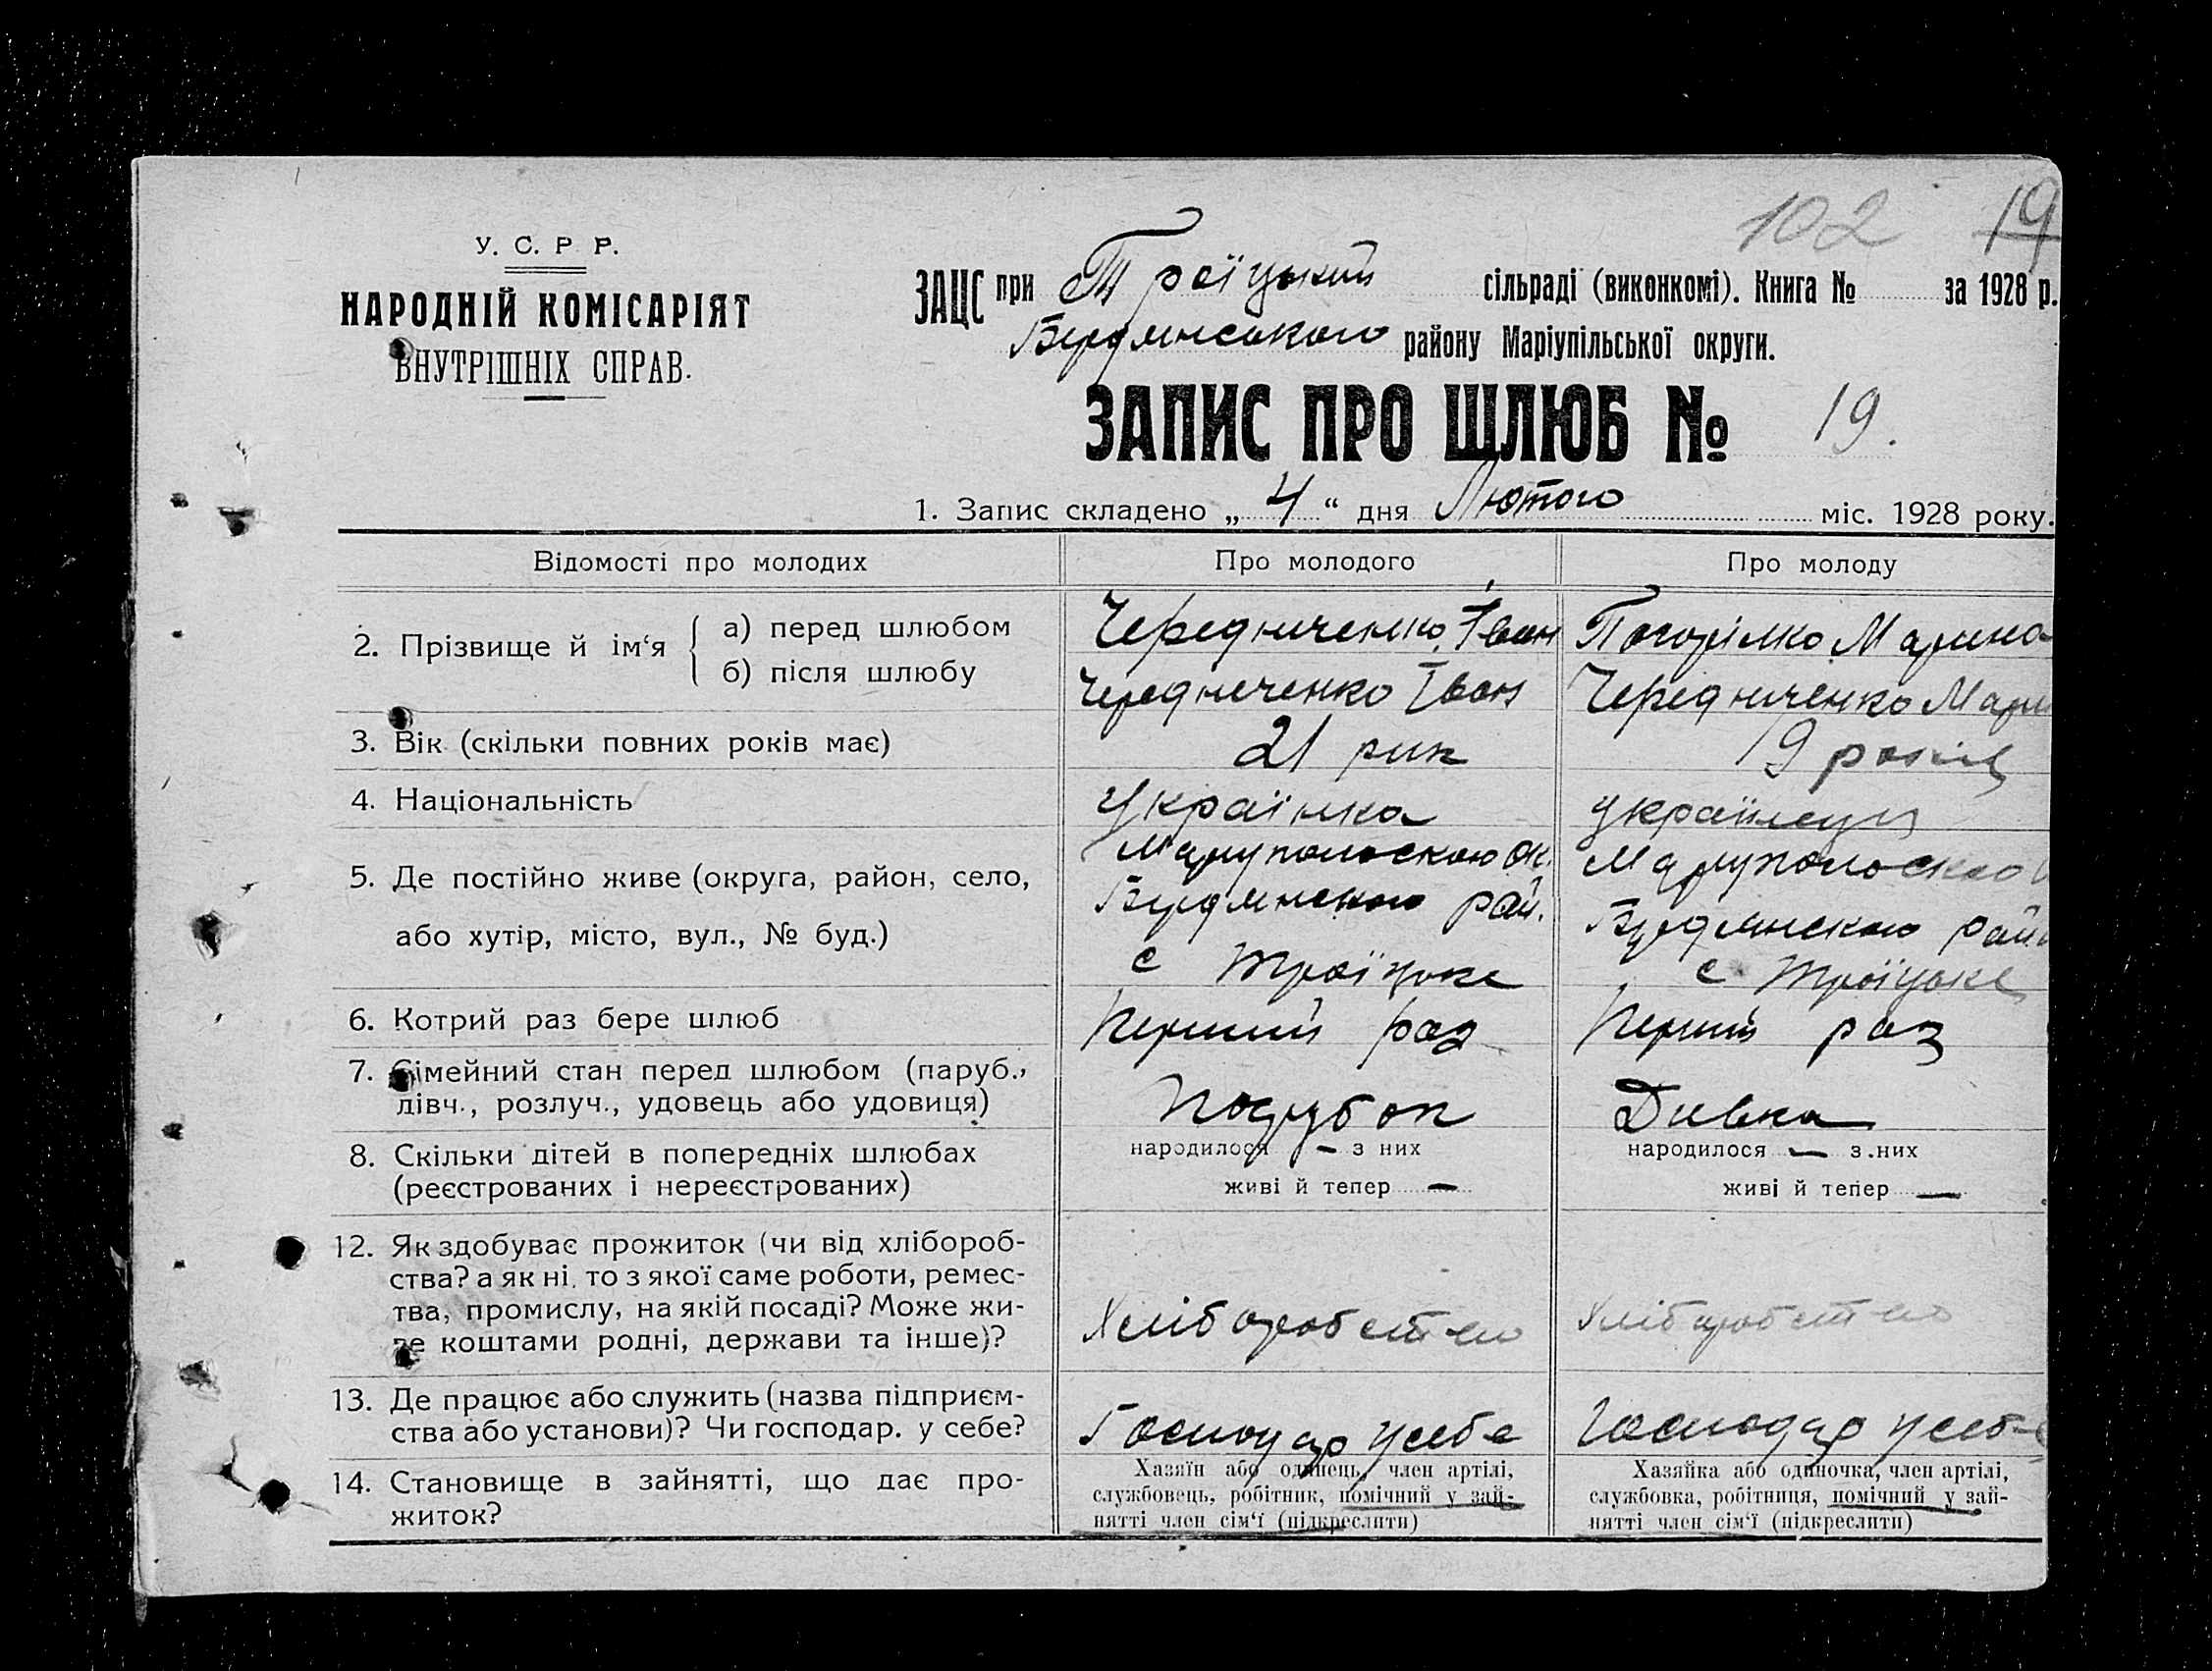 102 19
У. С. Р. Р.
НАРОДНІЙ КОМІСАРІЯТ
ВНУТРІШНІХ СПРАВ.
ЗАЦС при Троїцький сільраді (виконкомі). Книга № за 1928 р.
Бердянського району Маріупільської округи.
ЗАПИС ПРО ШЛЮБ № 19.
1. Запис складено „ 4 “ дня Лютого міс. 1928 року.
Відомості про молодих
Про молодого
Про молоду
2. Прізвище й ім‘я
а) перед шлюбом
Чередниченко, Іван
Погорілко Марина
б) після шлюбу
Чередниченко Іван
Чередниченко Мари
3. Вік (скільки повних років має)
21 рик
19 років
4. Національність
Українка
українець
5. Де постійно живе (округа, район, село,
або хутір, місто, вул., № буд.)
Мариупольскою Ок.
Бердянскою рай.
с Троїцьке
Мариупольскою
Бердянскою рай
с Троїцьке
6. Котрий раз бере шлюб
Перший раз
Перший раз
7. Сімейний стан перед шлюбом (паруб.,
дівч., розлуч., удовець або удовиця)
Парубок
Дивка
8. Скільки дітей в попередніх шлюбах
(реєстрованих і нереєстрованих)
народилося – з них
живі й тепер –
народилося – з них
живі й тепер –
12. Як здобуває прожиток (чи від хлібороб-
ства? а як ні, то з якої саме роботи, ремес-
тва, промислу, на якій посаді? Може жи-
ве коштами родні, держави та інше)?
Хліборобство
Хліборобство
13. Де працює або служить (назва підприєм-
ства або установи)? Чи господар. у себе?
Господар у себе
Господар у себе
14. Становище в зайнятті, що дає про-
житок?
Хазяїн або одинець, член артілі,
службовець, робітник, помічний у зай-
нятті член сім‘ї (підкреслити)
Хазяйка або одиночка, член артілі,
службовка, робітниця, помічний у зай-
нятті член сім‘ї (підкреслити)